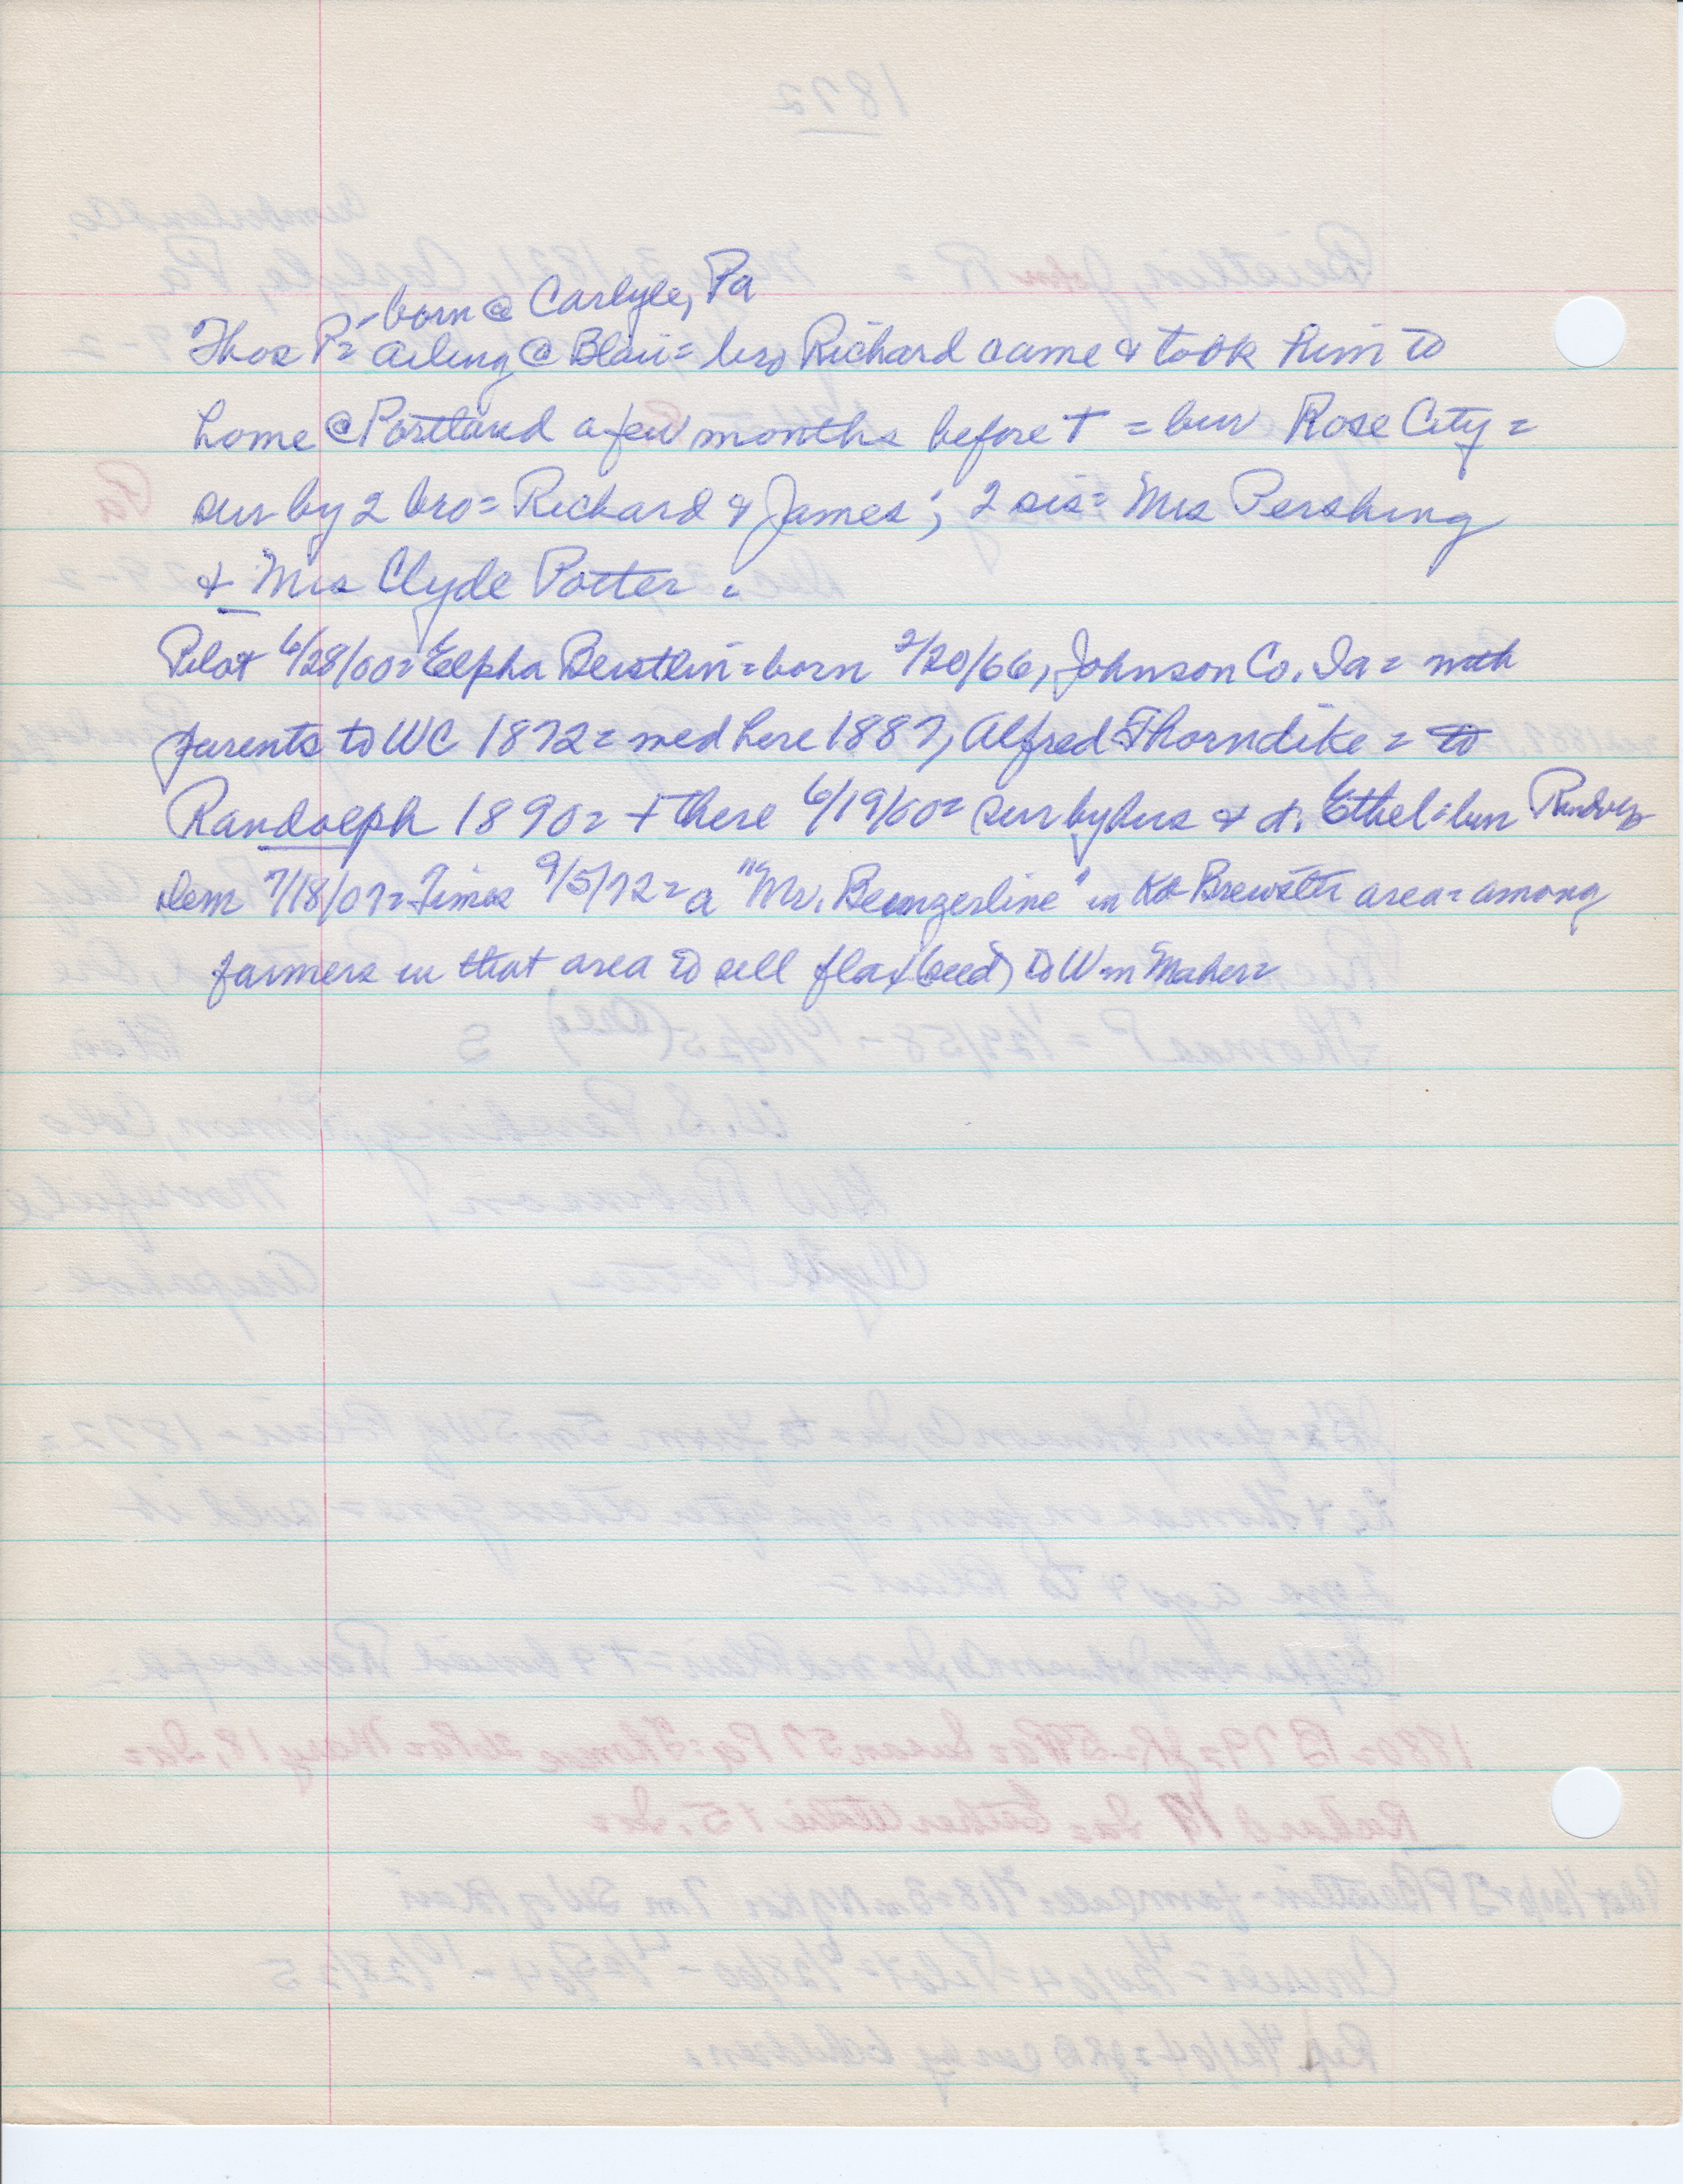 born @ Carlyle, Pa
Thos P= ailing @ Blair= bro Richard came & took him to
home @ Portland a few months before † = bur Rose City =
sur by 2 bro= Richard & James; 2 sis= Mrs Pershing
& Mrs Clyde Potter =
Pilot 6/28/00= Elpha Beistlin= born 2/20/66, Johnson Co. Ia= with
parents to WC 1872= med here 1887, Alfred Thorndike = to
Randolph 1890= † there 6/19/00= sur by hus & d. Ethel= bur Randolp
Dem 7/18/07= Times 9/5/72= a "Mr. Beingerline" in Brewster area= among
farmers in that area to sell flax (seed) to Wm Maher=